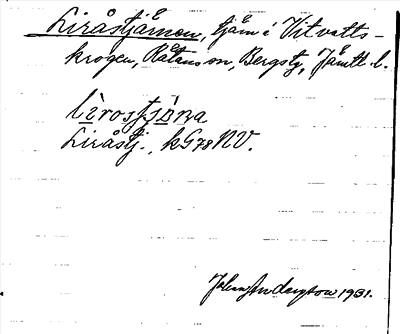 Liråstjärnen, tjärn i Vitvatts-
krogen, Rätans sn, Bergs tg, Jämtl. l.
Liråstj., k G78NV.
Johan Anderson 1931.